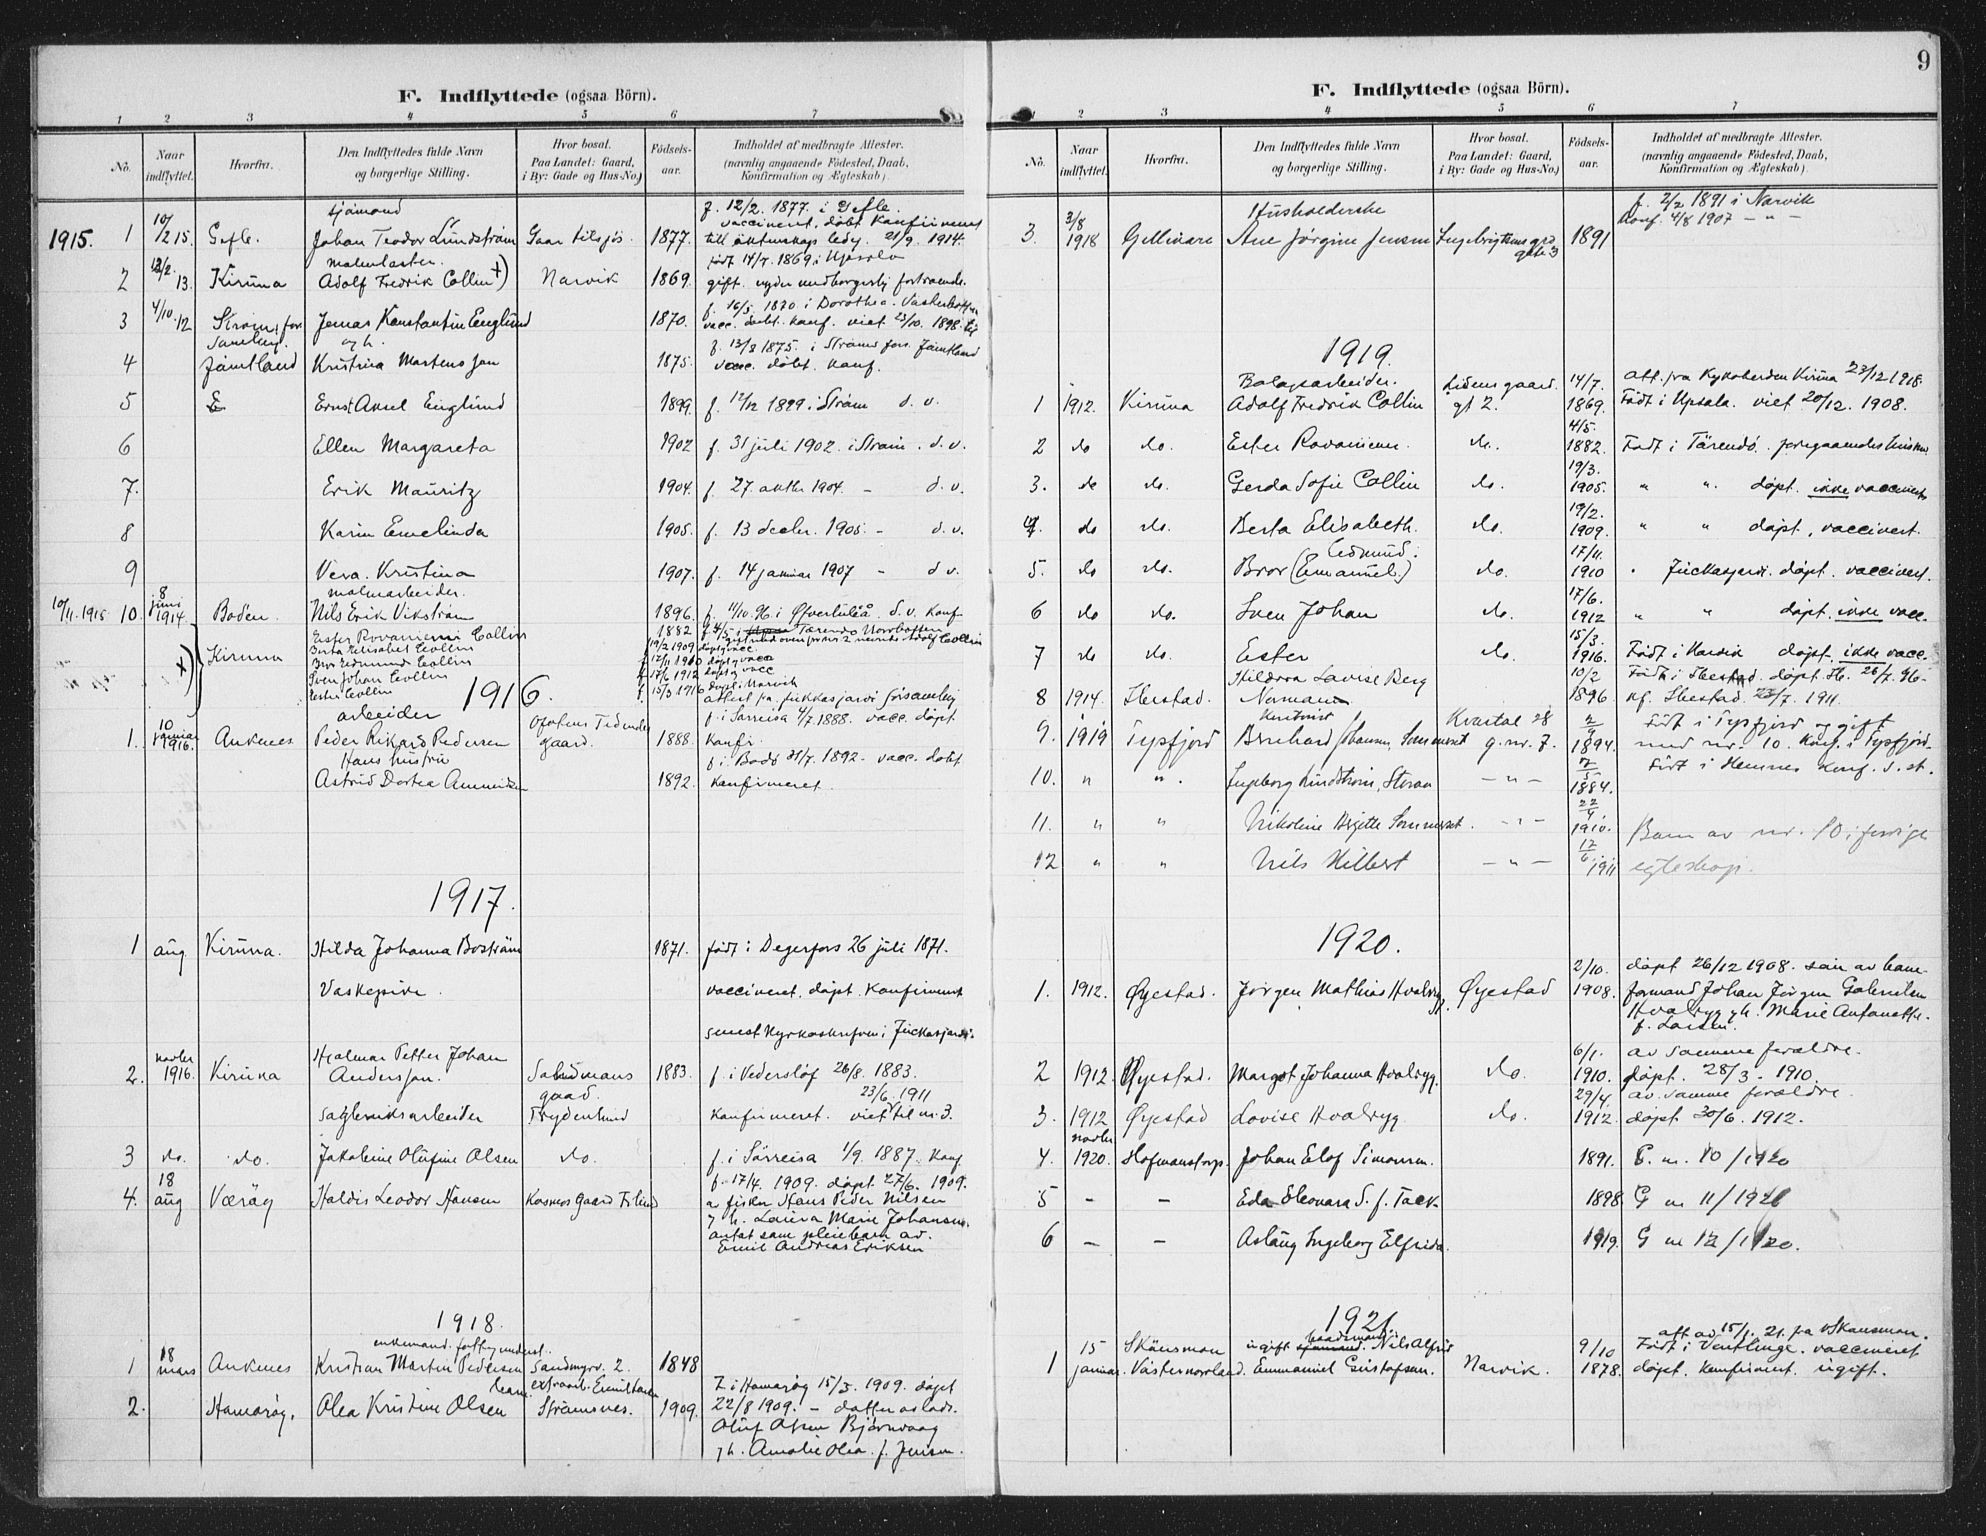 F. Indflyttede (ogsaa Börn).
1 2 3 4 5 6 7
No. Naar indflyttet. Hvorfra. Den Indflyttedes fulde Navn og borgerlige Stilling. Hvor bosat. Paa Landet: Gaard, i By: Gade og Hus-No.) Födsels-aar. Indholdet af medbragte Attester. (navnlig angaaende Födested, Daab, Konfirmation og Ægteskab).
sjömand f. 12/2. 1877. i Gefle.
vaccineret, döbt konfirmeret
1915. 1 10/12 15. Gefle. Johan Teodor Lundström 1877. till äktenskap ledig. 21/9. 1914.
malmlaster. født 14/7. 1869 i Upsala
2 13. Kiruna Adolf Fredrik Collin x) Narvik 1869. gift.
f. 16/5 1870 i Dorothea.
3 4/10. 12 Ström, Jonas Konstantin Englund 1870. vacc. döbt. konf. viet 23/10. 1898.
og h. f. 13/8 1875. i Ströms fors. Jämtland
4 Jämtland Kristina Martens Jon 1875. vacc. döbt. konf.
5 Ernst Aksel Englund 1899. f. 12/12 1899 i Ström d. v.
6 Ellen Margareta 1902 f. 31 juli 1902. i Ström. d. v.
7. Erik Mauritz 1904. f. 27. oktbr 1904. - d. v.
8 Karin Emelinda 1905. f. 13 decbr. 1905 - d. v.
9 Vera Kristina 1907. f. 14 januar 1907 - d v.
malmarbeider.
10/11. 1915 10. 8 juni 1914 Boden. Nils Erik Vikström 1896. f. 11/10. 96. i Øfverluleå. d. v. konf
Ester Rovaniemi Collin 1882 f. 4/5 i Tärendö Norrbotten
x) Kiruna Berta Elisabet Collin 19/2 1909 døpt vacc.
Bror Edmund Collin 17/11 1910 døpt vacc
Sven Johan Collin f. 17/6 1912 døpt vacc
Ester Collin f. 15/3 1916 døpt i Narvik
1916. attest fra Jukkasjärvi församling
arbeider f. i Sørreisa 4/7. 1888. vacc. døpt.
1. 10 januar 1916. Ankenes Peder Rikard Pedersen gaard. 1888. konfr.
Hans hustru f. i Bodø 31/7. 1892. vacc. døbt
Astrid Dortea 1892. konfirmeret.
1917.
1 aug Kiruna. Hilda Johanna Boström 1871. født i Degerfors 26 juli 1871.
Vaskepike. vaccineret. døpt. konfirmert
Jukkasjärvi.
Hjalmar Petter Johan
2. novbr 1916. Kiruna Andersson. gaad. 1883. f. i Vederslöf 26/8. 1883.
23/6. 1911
arbeider Frydenlund konfirmeret. viet til nr. 3.
3 do. do. Jakobine Olufine Olsen do. f. i Sørreisa 1/9. 1887. konf
f. 17/4. 1909. døpt 27/6. 1909.
4. 18 aug Værøy Haldis Leodor Hansen av fisker Hans Peder Nilsen
g h. Laura Marie Johansen.
antat som pleiebarn av.
Emil Andreas Eriksen
1918.
enkemand.
1 18 mars Ankenes Kristian Martin Pedersen Sandmyrv. 2. 1848
f. i Hamarøy 15/5. 1909. døpt
2. Hamarøy. Olea Kristine Olsen Strømsnes. 1909. 22/8 1909. - datter av
Oluf Olsen Bjørnvaag
g h. Amalie Olea f. Jensen.
9
F. Indflyttede (ogsaa Börn).
1 2 3 4 5 6 7
No. Naar indflyttet. Hvorfra. Den Indflyttedes fulde Navn og borgerlige Stilling. Hvor bosat. Paa Landet: Gaard, i By: Gade og Hus-No.) Födsels-aar. Indholdet af medbragte Attester. (navnlig angaaende Födested, Daab, Konfirmation og Ægteskab).
Husholderske f. 2/2 1891 i Narvik
Konf. 4/8 1907 - " -
3. 3/8 1918 Gellivare Ane Jørgine Jensen 1891
1919.
Bolagsarbeider. Lidens gaard. 14/7. att. fra Kyrkoherden Kiruna 23/12 1918.
1 1912. Kiruna Adolf Fredrik Collin gt 2. 1869. Født i Upsala. viet 20/12. 1908.
2 do do. Ester Rovaniemi. do. 4/5. 1882. Født i Tärendö. foregaaendes hustru
3. do do. Gerda Sofie Collin do. 19/3. 1905. " " døpt. ikke vaccinert
4. do do. Berta Elisabeth. do. 19/2. 1909. " " døpt, vaccinert.
Edmund.
5. do do. Bror (Emanuel.) do. 17/11. 1910 " Juckasjervi. døpt. vaccinert.
6 do do. Sven Johan do. 17/6. 1912 " " døpt. ikke vacc.
7 do do. Ester do. 15/3. 1916. Født i Narvik døpt. ikke vacc.
Hildora Lovise Berg 10/2 Født i Ibestad. døpt
8 1914. Ibestad. Normann 1896. kf. Ibestad. 23/7. 1911.
Kvartal 28 Født i Tysfjord og gift
9. 1919 Tysfjord Bernhard Johansen Sommerset g. nr. 7. 1894. med nr. 10. Konf. i Tysfjord.
10. " " Ingeborg Lindstrøm, - " - 7/5 1884. Født i Hemnes konf. s. st.
11. " " Nikoline Birgitte Sommerset. - " - 22/4 1910. Barn av nr. 10 i forrige
12 " " Nils Hilbert - " - 12/6. 1911 egteskap.
1920.
2/10. døpt 26/12 1908. søn av bane-
1. 1912. Øyestad. Jørgen Mathias Hvalryg. Øyestad 1908. formand Johan Jørgen Gabrielsen
Hvalryg g h. Marie Antonette.
f. Larsen.
6/1. av samme forældre.
2 1912. Øyestad. Margot Johanna Hvalryg. do. 1910. døpt. 28/3 - 1910.
29/4. av samme forældre.
3. 1912 Øyestad Lovise Hvalryg do. 1912. døpt 30/6. 1912.
novbr
4. 1920. Hofmanstorp. Johan Elof Simonsen. 1891. G. m. 10/1920
5 - - Eda Eleonora S. f. Tack 1898 G m 11/1920
6 - - Aslaug Ingeborg Elfrida. 1919. G m 12/1920.
1921.
att av 15/1. 21. fra Skönsmon.
15 Skönsmon ugift Nils Alfrid 9/10 Født i Ventlinge. vaccineret
1 januar. Västernorrland. Emmanuel Gustafsen. Narvik. 1878. døpt. konfirmert. ugift.